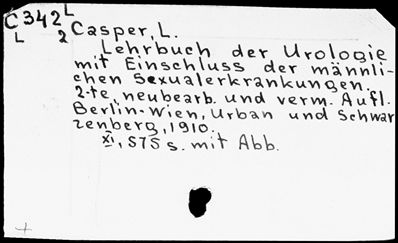 C 342 L
L 2 Casper, L.
Lehrbuch der Urologie
mit Einschluss der männli-
chen Sexualerkrankungen.
2-te, neubearb. und verm. Aufl.
Berlin-Wien, Urban und Schwar
zenberg, 1910.
XI, 575 s. mit Abb.